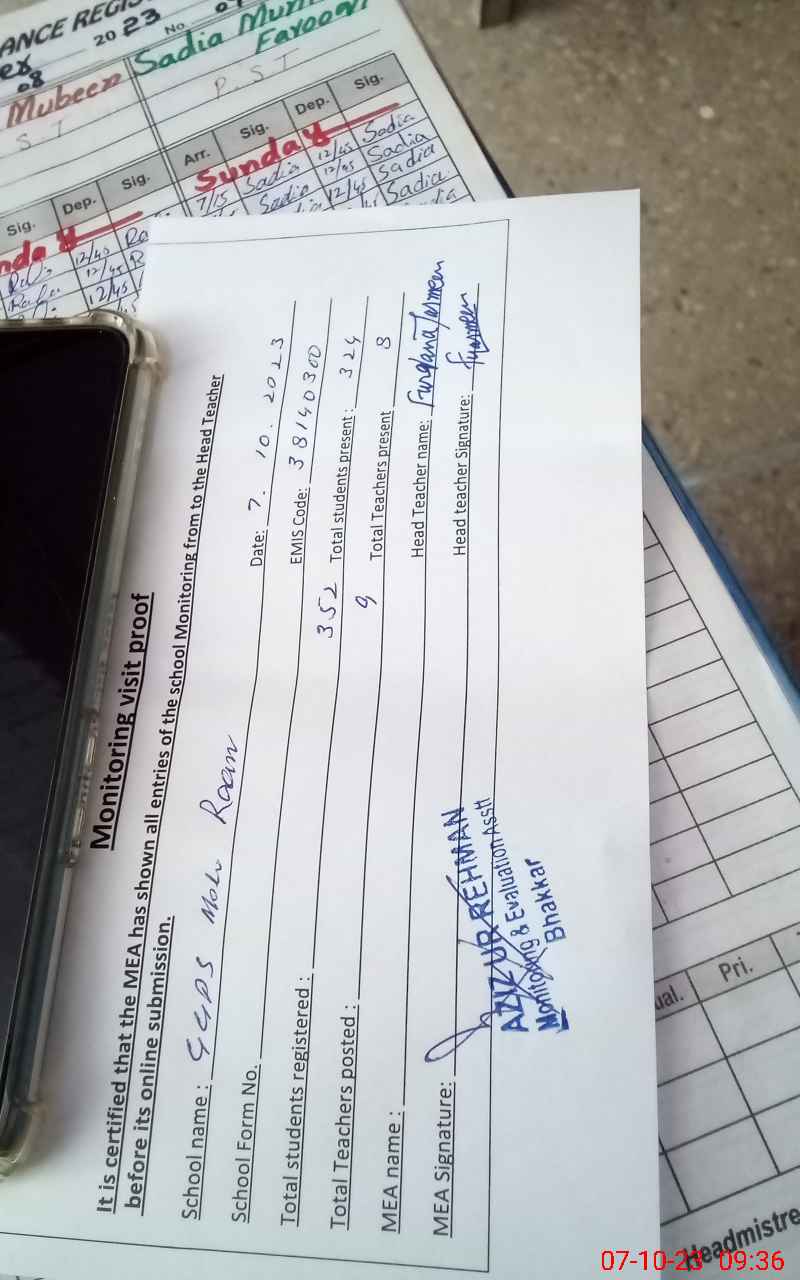 ANCE REGIS
2023 No.
08
Mubeen Sadia Muni
Farooqi
S.T P.S.T
Sig. Dep. Sig. Arr. Sig. Dep. Sig.
Sunday
7/15 Sadia 12/45 Sadia
12/45 Sadia 12/45 Sadia
12/45 12/45 Sadia
12/45 Sadia
Monitoring visit proof
It is certified that the MEA has shown all entries of the school Monitoring from to the Head Teacher
before its online submission.
School name : GGPS Date: 7.10.2023
School Form No. EMIS Code: 38140300
Total students registered : 352 Total students present : 324
Total Teachers posted : 9 Total Teachers present 8
MEA name : Head Teacher name: Furqana Jasmeen
MEA Signature: Head teacher Signature:
AZIZ UR REHMAN
Monitoring & Evaluation Asstt
Bhakkar
ual. Pri.
Headmistre
07-10-23 09:36